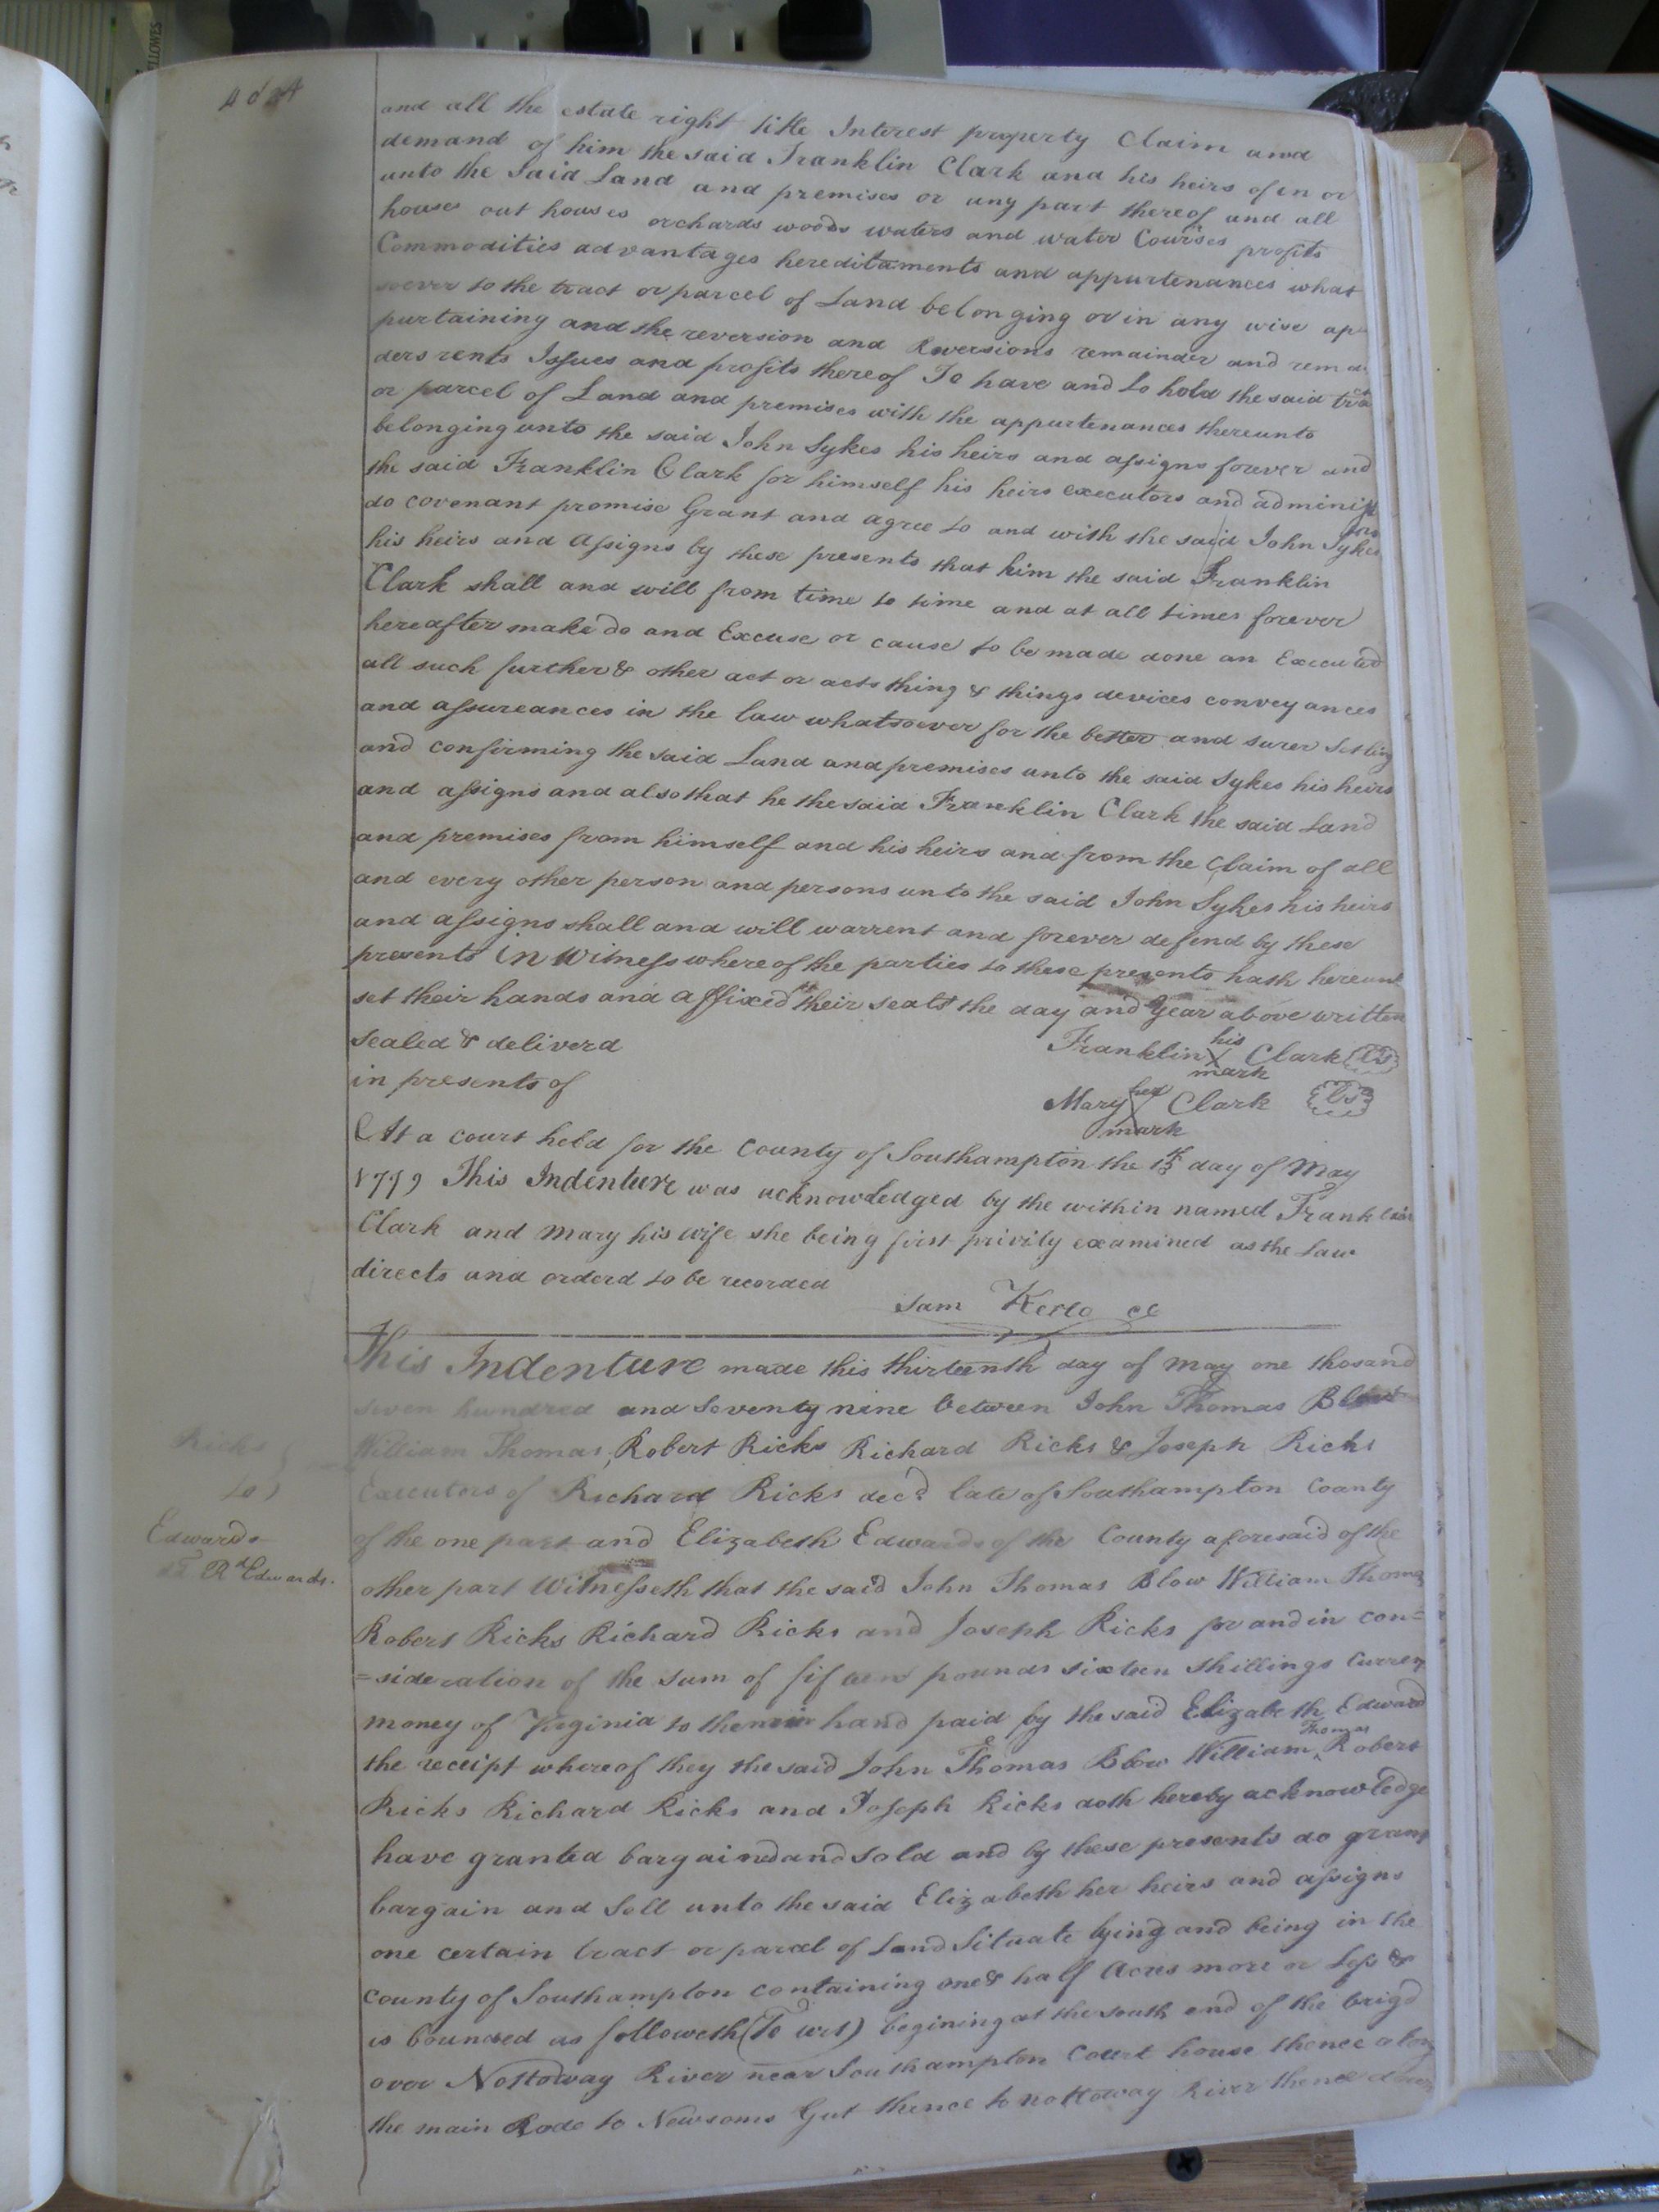 and all the estate right title Interest property Claim and
demand of him the said Franklin Clark and his heirs of in or
unto the Said Land and premises or any part thereof and all
houses out houses orchards woods waters and water Courses profits
Commodities advantages hereditaments and appurtenances what
soever to the tract or parcel of Land belonging or in any wise ap
purtaining and the reversion and Reversions remainder and rema
ders rents Issues and profits thereof To have and to hold the said tract
or parcel of Land and premises with the appurtenances thereunto
belonging unto the said John Sykes his heirs and assigns forever and
the said Franklin Clark for himself his heirs executors and administ
do covenant promise Grant and agree to and with the said John Sykes
his heirs and Assigns by these presents that him the said Franklin
Clark shall and will from time to time and at all times forever
hereafter make do and Excuse or cause to be made done an Executed
all such further & other act or acts thing & things devices conveyances
and assureances in the law whatsoever for the better and surer Setling
and confirming the said Land and premises unto the said Sykes his heirs
and assigns and also that he the said Franklin Clark the said Land
and premises from himself and his heirs and from the Claim of all
and every other person and persons unto the said John Sykes his heirs
and assigns shall and will warrent and forever defend by these
presents In Witness whereof the parties to these presents hath hereunt
set their hands and affixed their seals the day and Year above written
Sealed & deliverd
in presents of
Franklin his X mark Clark LS
Mary her X mark Clark LS
At a court held for the County of Southampton the 13th day of May
1779 This Indenture was acknowledged by the within named Franklin
Clark and Mary his wife she being first privily examined as the Law
directs and orderd to be recorded
Sam Kello cl
This Indenture made this thirteenth day of May one thosand
seven hundred and Seventy nine between John Thomas Blow
William Thomas, Robert Ricks Richard Ricks & Joseph Ricks
Executors of Richard Ricks decd late of Southampton County
of the one part and Elizabeth Edwards of the County aforesaid of the
other part Witnesseth that the said John Thomas Blow William Thomas
Robert Ricks Richard Ricks and Joseph Ricks for and in con=
=sideration of the Sum of fifteen pounds sixteen Shillings Curren
money of Virginia to them in hand paid by the said Elizabeth Edward
the receipt whereof they the said John Thomas Blow William Thomas Robert
Ricks Richard Ricks and Joseph Ricks doth hereby acknowledge
have granted bargained and Sold and by these presents do grant
bargain and Sell unto the said Elizabeth her heirs and assigns
one certain tract or parcel of Land Situate lying and being in the
County of Southampton containing one & half Acres more or Less &
is bounded as followeth (To wit) begining at the south end of the brigd
over Nottoway River near Southampton Court house thence along
the main Rode to Newsoms Gut thence to nottoway River thence down
Ricks
to
Edwards
Rd Edwards.